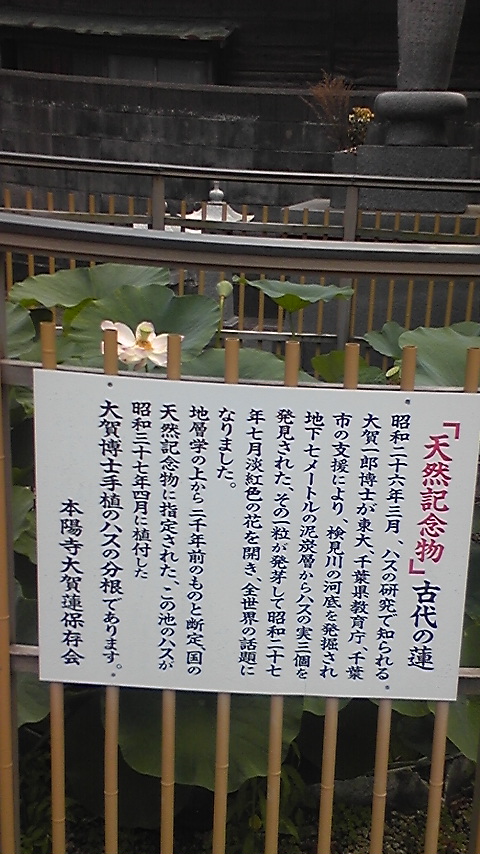 「天然記念物」古代の蓮
昭和二十六年三月、ハスの研究で知られる
大賀一郎博士が東大、千葉県教育庁、千葉
市の支援により、検見川の河底を発掘され
地下七メートルの泥炭層からハスの実三個を
発見された、その一粒が発芽して昭和二十七
年七月淡紅色の花を開き、全世界の話題に
なりました。
地層学の上から二千年前のものと断定、国の
天然記念物に指定された、この池のハスが
昭和三十七年四月に植付した
大賀博士手植のハスの分根であります。
本陽寺大賀蓮保存会